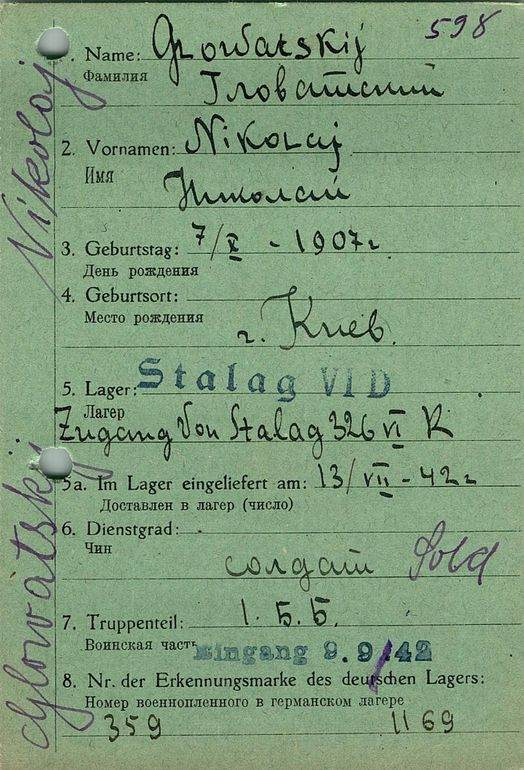 598
1. Name: Glowatskij
Фамилия
Гловатский
2. Vornamen: Nikolaj
Имя
Николай
3. Geburtstag: 7/X - 1907 г
День рождения
4. Geburtsort:
Место рождения
г. Киев.
5. Lager: Stalag VI D
Лагер
Zugang von Stalag 326 VI K
5a. Im Lager eingeliefert am: 13/VII - 42 г
Доставлен в лагер (число)
6. Dienstgrad:
Чин
солдат Sold
7. Truppenteil: 1. Б. Б.
Воинская часть
Eingang 9. 9. 42
8. Nr. der Erkennungsmarke des deutschen Lagers:
Номер военнопленного в германском лагере
359 1169
Glowatskij Nikolaj